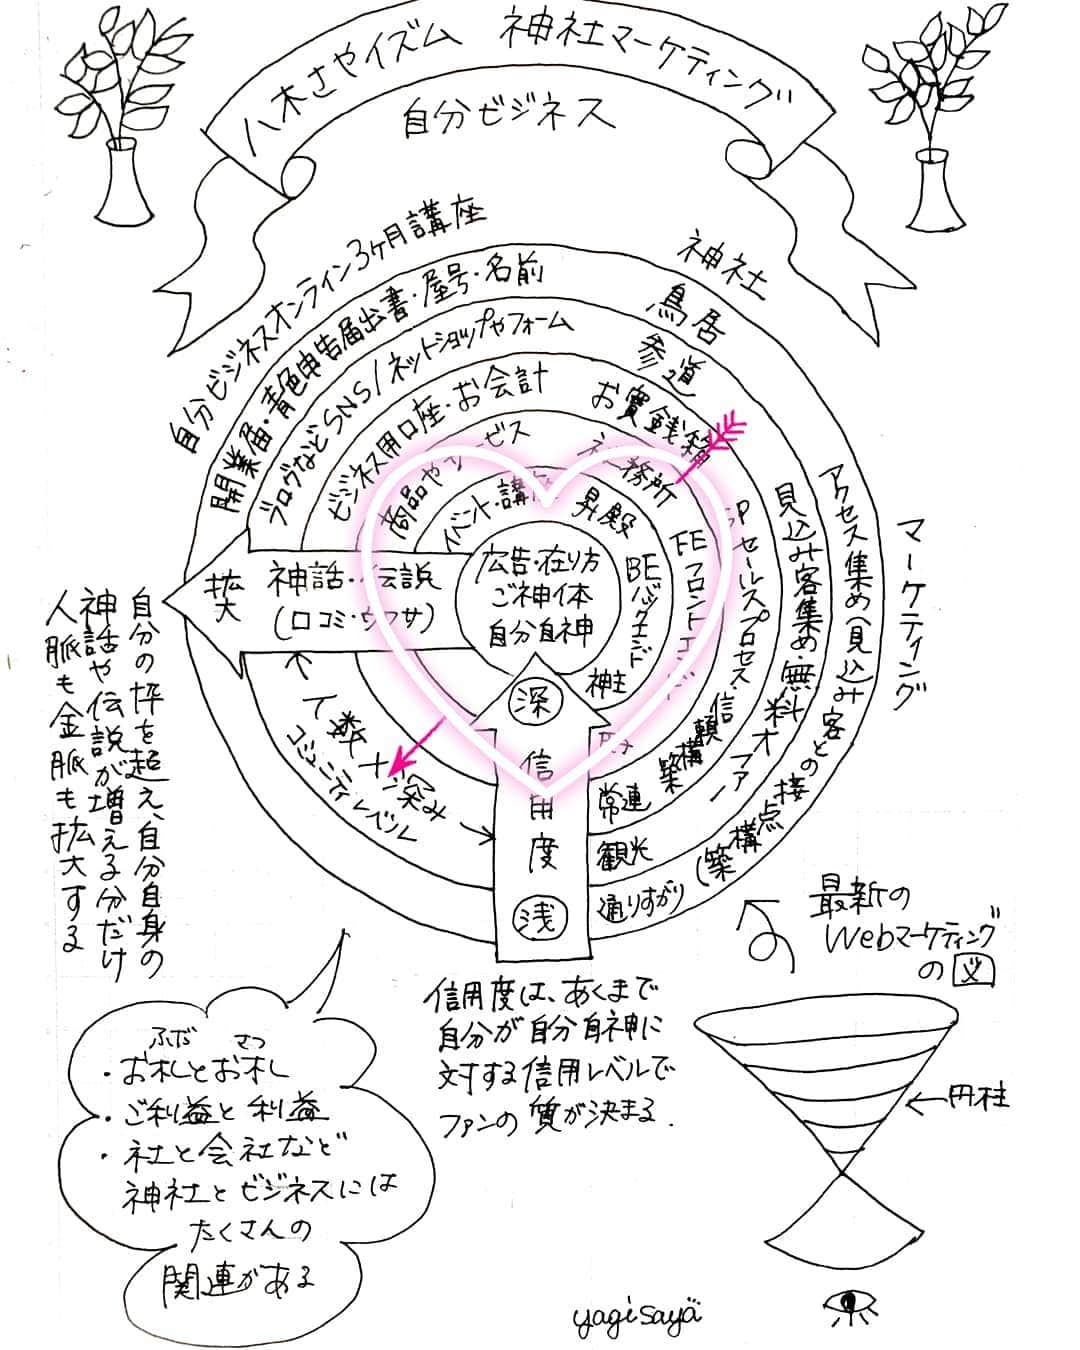 八木さやイズム 神社マーケティング
自分ビジネス
自分ビジネスオンライン3ヶ月講座
開業届・青色申告届出書・屋号・名前
ブログなどSNS/ネットショップやフォーム
ビジネス用口座・お会計
商品やサービス
イベント・講座
神社
鳥居
参道
お賽銭箱
社務所
昇殿
広告・在り方
ご神体
自分自神
マーケティング
アクセス集め(見込み客との接点構築)
見込み客集め・無料オファー
SPセールスプロセス・信頼構築
FEフロントエンド
BEバックエンド
拡大
神話・伝説
(口コミ・ウワサ)
自分の枠を超え、自分自身の
神話や伝説が増える分だけ
人脈も金脈も拡大する
人数ナン深み
コミュニティレベル
深
信用度
浅
神主
常連
観光
通りすがり
最新の
Webマーケティング
の図
円柱
信用度は、あくまで
自分が自分自神に
対する信用レベルで
ファンの質が決まる.
ふだ さつ
・お札とお札
・ご利益と利益
・社と会社など
神社とビジネスには
たくさんの
関連がある
yagisaya